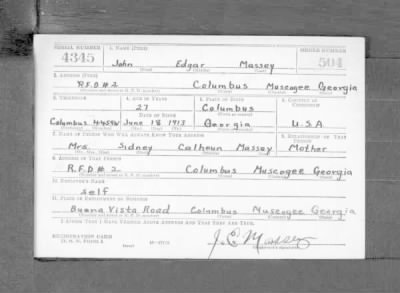 SERIAL NUMBER 1. NAME (Print) ORDER NUMBER
4345 John Edgar Massey 504
(First) (Middle) (Last)
2. ADDRESS (Print)
R.F.D # 2 Columbus Muscogee Georgia
3. TELEPHONE 4. AGE IN YEARS 5. PLACE OF BIRTH 6. COUNTRY OF CITIZENSHIP
27 Columbus
DATE OF BIRTH
Columbus June 18 1913 Georgia U.S.A
7. NAME OF PERSON WHO WILL ALWAYS KNOW YOUR ADDRESS 8. RELATIONSHIP OF THAT PERSON
Mrs. Sidney Calhoun Massey Mother
9. ADDRESS OF THAT PERSON
R.F.D # 2. Columbus Muscogee Georgia
10. EMPLOYER'S NAME
self
11. PLACE OF EMPLOYMENT OR BUSINESS
Buena Vista Road Columbus Muscogee Georgia
I AFFIRM THAT I HAVE VERIFIED ABOVE ANSWERS AND THAT THEY ARE TRUE.
REGISTRATION CARD
D. S. S. FORM 1
J. E. Massey